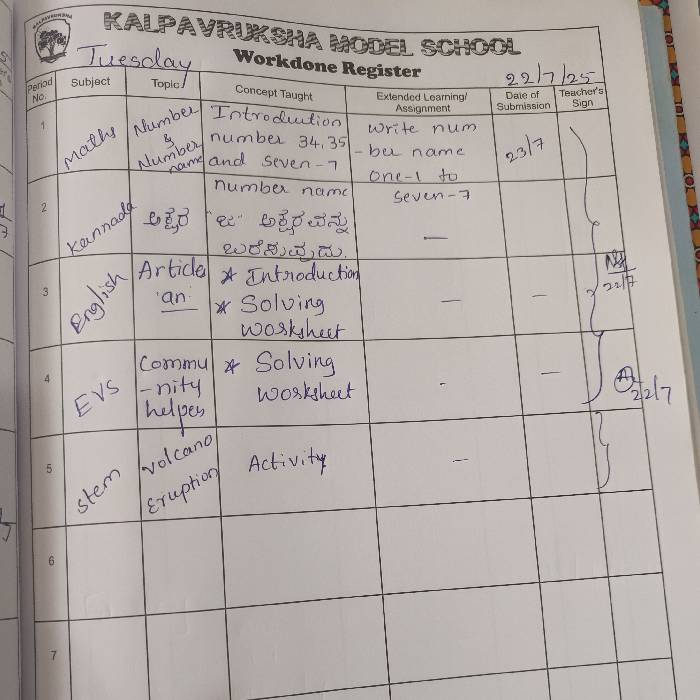 KALPAVRUKSHA MODEL SCHOOL
Tuesday
Workdone Register
22/7/25
Period No.
Subject
Topic
Concept Taught
Extended Learning/ Assignment
Date of Submission
Teacher's Sign
1
Maths
Number
&
Number
name
Introduction
number 34, 35
and seven-7
number name
Write num
-ber name
one-1 to
seven-7
23/7
2
Kannada
ಅಕ್ಷರ
ಅಕ್ಷರವನ್ನು
ಬರೆಸುವುದು.
—
3
English
Article
'an'
* Introduction
* Solving
worksheet
—
—
22/7
4
EVS
Commu
-nity
helpes
* Solving
worksheet
-
—
22/7
5
Stem
Volcano
Eruption
Activity
—
6
7